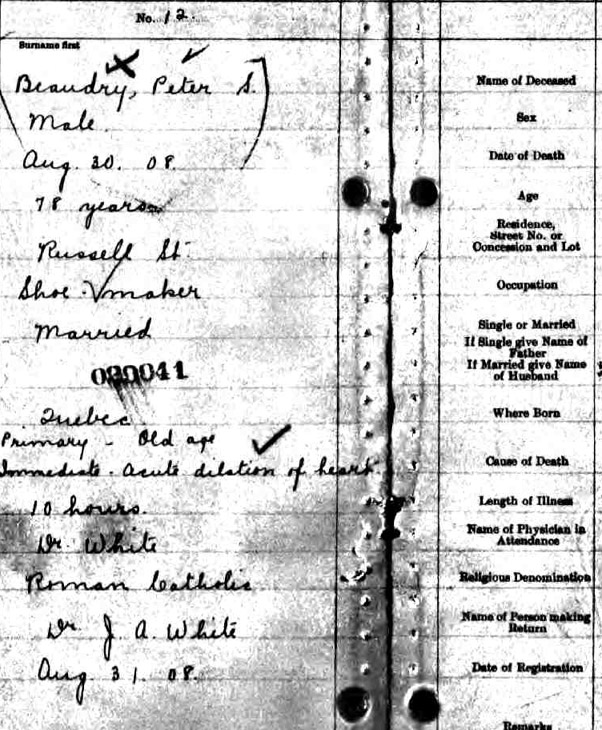 No. 12
Surname first
Beaudry, Peter S.
Name of Deceased
Male
Sex
Aug. 30. 08.
Date of Death
78 years
Age
Russell St.
Residence,
Street No. or
Concession and Lot
Shoe maker
Occupation
Married
Single or Married
If Single give Name of
Father
If Married give Name
of Husband
Quebec
Where Born
Primary - Old age
Immediate - Acute dilation of heart.
Cause of Death
10 hours.
Length of Illness
Dr. White
Name of Physician in
Attendance
Roman Catholic
Religious Denomination
Dr. J. A. White
Name of Person making
Return
Aug 31. 08.
Date of Registration
Remarks